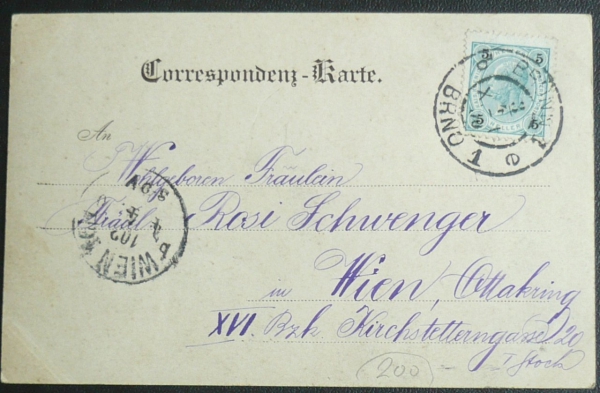 Correspondenz-Karte.
5 5
5 5
BRÜNN
BRNO
1 e 2
An
Wohlgeboren Fräulein
Rosi Schwenger
in Wien, Ottakring
XVI. Bzk. Kirchstetterngasse 20
I. Stock
WIEN
200